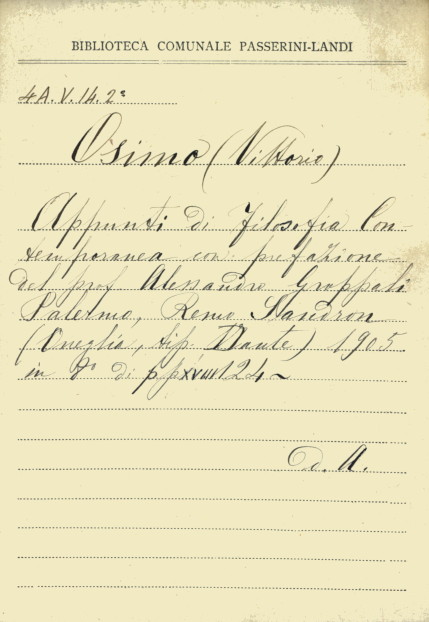 BIBLIOTECA COMUNALE PASSERINI-LANDI
4 A.V.14.2ª
Osimo (Vittorio)
Appunti di Filosofia Con-
temporanea con prefazione
del prof Alessandro Groppali
Palermo, Remo Sandron
(Oneglia, tip. Dante) 1905
in 8° di pp XVIII 124 ~
D. A.